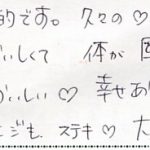 的です。久々の♡
いしくて 体が
おいしい♡ 幸せあ
ジも ステキ♡ 大